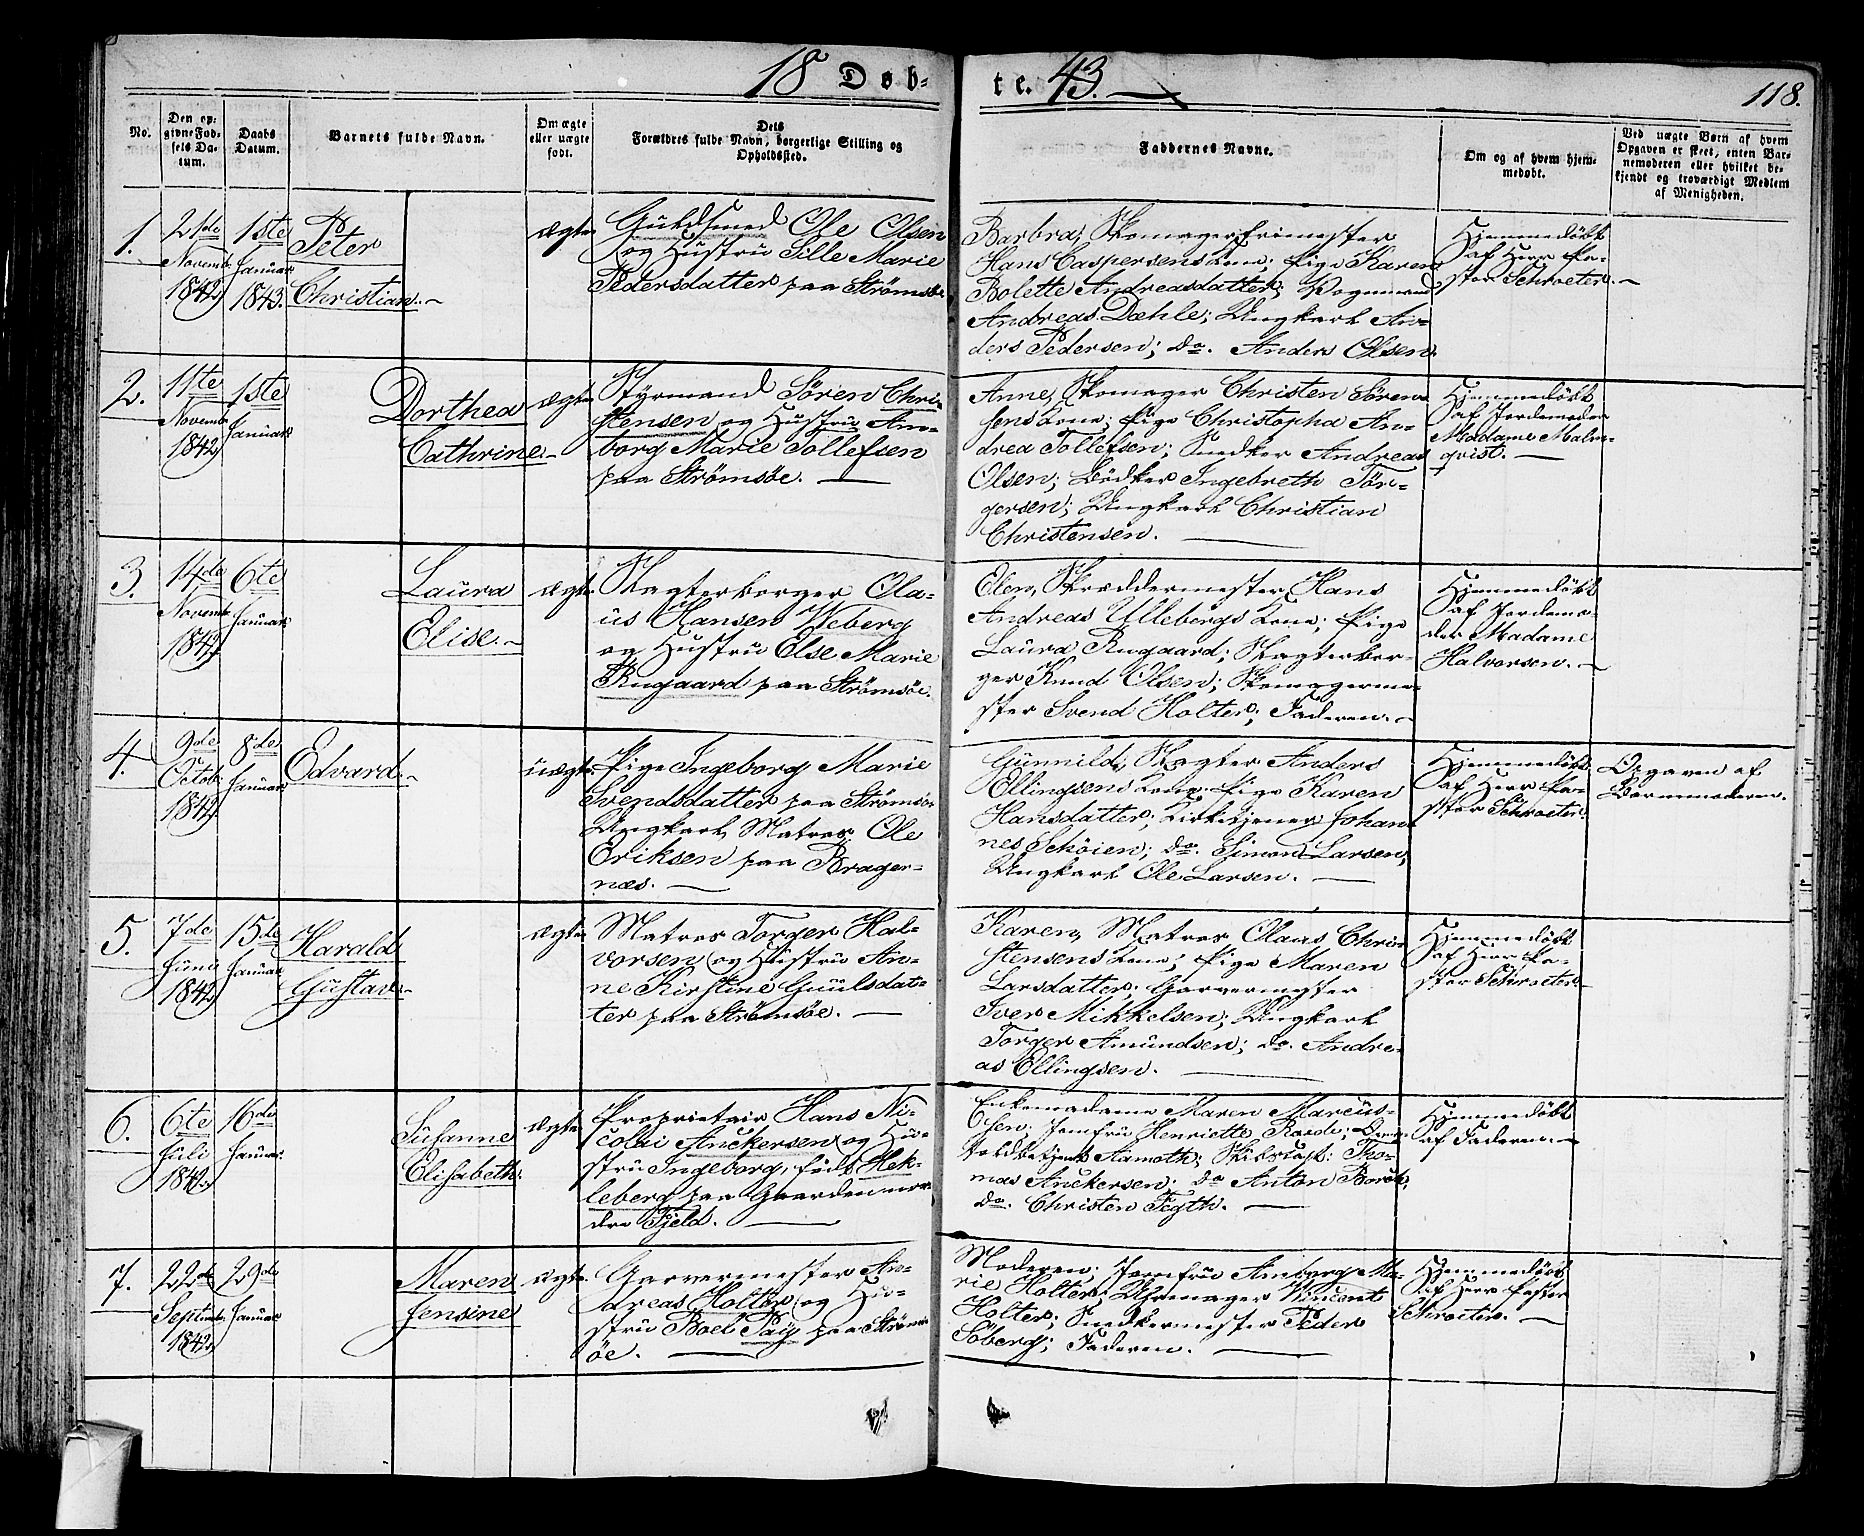 18 Døb-
te. 43.
118.
No.
Den op-
givne Fød-
sels Da-
tum.
Daabs
Datum.
Barnets fulde Navn.
Om ægte
eller uægte
født.
Dets
Forældres fulde Navn, borgerlige Stilling og
Opholdssted.
Faddernes Navne.
Om og af hvem hjem-
medøbt.
Ved uægte Børn af hvem
Opgaven er skeet, enten Bar-
nemoderen eller hvilket be-
kjendt og troværdigt Medlem
af Menigheden.
1.
21de
Novemb.
1842
1ste
Januar
1843.
Peter
Christian.
ægte
Guldsmed Ole Olsen
og Hustru Sille Marie
Pedersdatter paa Strømsøe
Barbra, Skomagerfrimester
Hans Caspersens Kone; Pige Karen
Bolette Andreasdatter; Vognmand
Andreas Dæhle; Ungkarl An-
ders Pedersen; do. Anders Olsen
Hjemmedøbt
af Herr Pa-
stor Schroeter.
2.
11te
Novemb.
1842
1ste
Januar
Dorthea
Cathrine
ægte
Styrmand Sören Chri-
stensen og Hustru An-
borg Marie Tollefsen
paa Strømsøe.
Anne, Skomager Christen Sören-
sens Kone; Pige Christopha An-
drea Tollefsen; Snedker Andreas
Olsen; Bödker Ingebreth Tör-
gersen; Ungkarl Christian
Christensen.
Hjemmedøbt
af Jordemoder
Madame Malm-
qvist.
3.
14de
Novemb.
1842
6te
Januar
Laura
Elise.
ægte
Slagterborger Ola-
us Hansen Weberg
og Hustru Else Marie
Knugaard paa Strømsøe.
Elen, Skræddermester Hans
Andreas Ullebergs Kone; Pige
Laura Knugaard; Slagterbor-
ger Knud Olsen; Skomagerme-
ster Svend Holter; Faderen.
Hjemmedøbt
af Jordemo-
der Madame
Halvorsen.
4.
9de
Octob.
1842
8de
Januar
Edvard.
uægte
Pige Ingeborg Marie
Svendsdatter paa Strømsøe
Ungkarl, Matros Ole
Eriksen paa Brager-
næs.
Gunnild, Slagter Anders
Ellingsens Kone; Pige Karen
Hansdatter; Kirketjener Johan-
nes Schöien; do. Simon Larsen;
Ungkarl Ole Larsen.
Hjemmedøbt
af Herr Pa-
stor Schroeter
Opgaven af
Barnemoderen.
5.
7de
Juni
1842
15de
Januar
Harald
Gustav.
ægte
Matros Torger Hal-
vorsen og Hustru An-
ne Kirstine Guulsdat-
ter paa Strømsøe.
Karen, Matros Olaus Chri-
stensens Kone; Pige Maren
Larsdatter; Garvermester
Iver Mikkelsen; Ungkarl
Torger Amundsen; do. Andre-
as Ellingsen.
Hjemmedøbt
af Herr Pa-
stor Schroeter
6.
6te
Juli
1842
16de
Januar
Susanne
Elisabeth
ægte
Proprietair Hans Ni-
colai Anckersen og Hu-
stru Ingeborg, född Hek-
leberg paa Gaarden nor-
dre Fjeld.
Enkemadame Maren Marcus-
sen; Jomfru Henriette Raade;
Toldbetjent Aamoth; Skibscapt: Tho-
mas Anckersen; do Anton Borch
do. Christen Fegth.
Hjemmedøbt
af Faderen.
7.
22de
Septemb.
1842
29de
Januar
Maren
Jensine
ægte
Garvermester An-
dreas Holter og Hu-
stru Boel Pay paa Strøms-
öe.
Moderen; Jomfru Anborg Ma-
rie Holter; Uhrmager Vincent
Holter; Snedkermester Peder
Söberg; Faderen.
Hjemmedøbt
af Herr Pastor
Schroeter.